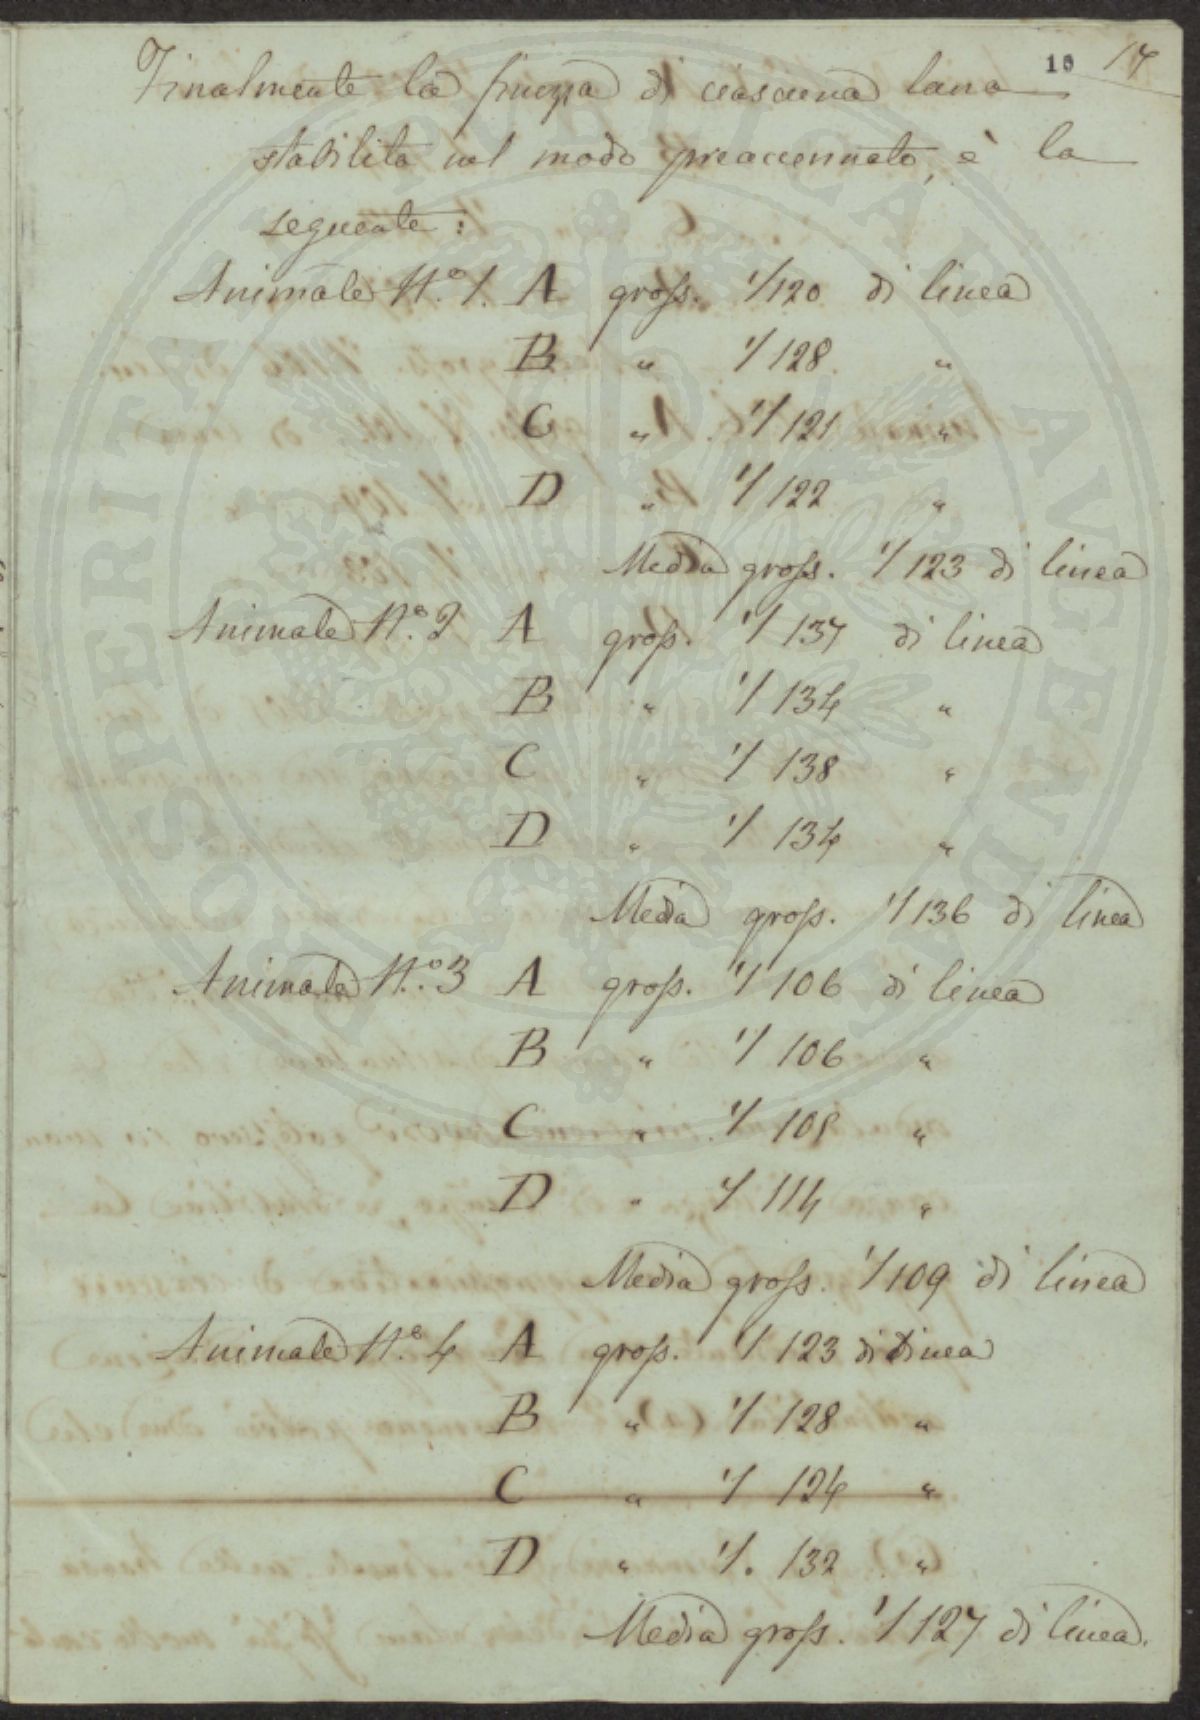 10 17
Finalmente la finezza di ciascuna lana
stabilita nel modo preaccennato, è la
seguente:
Animale N.o 1. A gross. 1/120 di linea
B " 1/128 "
C " 1/121 "
D " 1/122 "
Media gross. 1/123 di linea
Animale N.o 2 A gross. 1/137 di linea
B " 1/134 "
C " 1/138 "
D " 1/134 "
Media gross. 1/136 di linea
Animale N.o 3 A gross. 1/106 di linea
B " 1/106 "
C " 1/109 "
D " 1/114 "
Media gross. 1/109 di linea
Animale N.o 4 A gross. 1/123 di linea
B " 1/128 "
C " 1/124 "
D " 1/. 132 "
Media gross. 1/127 di linea.
PROSPERITATI PUBLICAE AUGENDAE